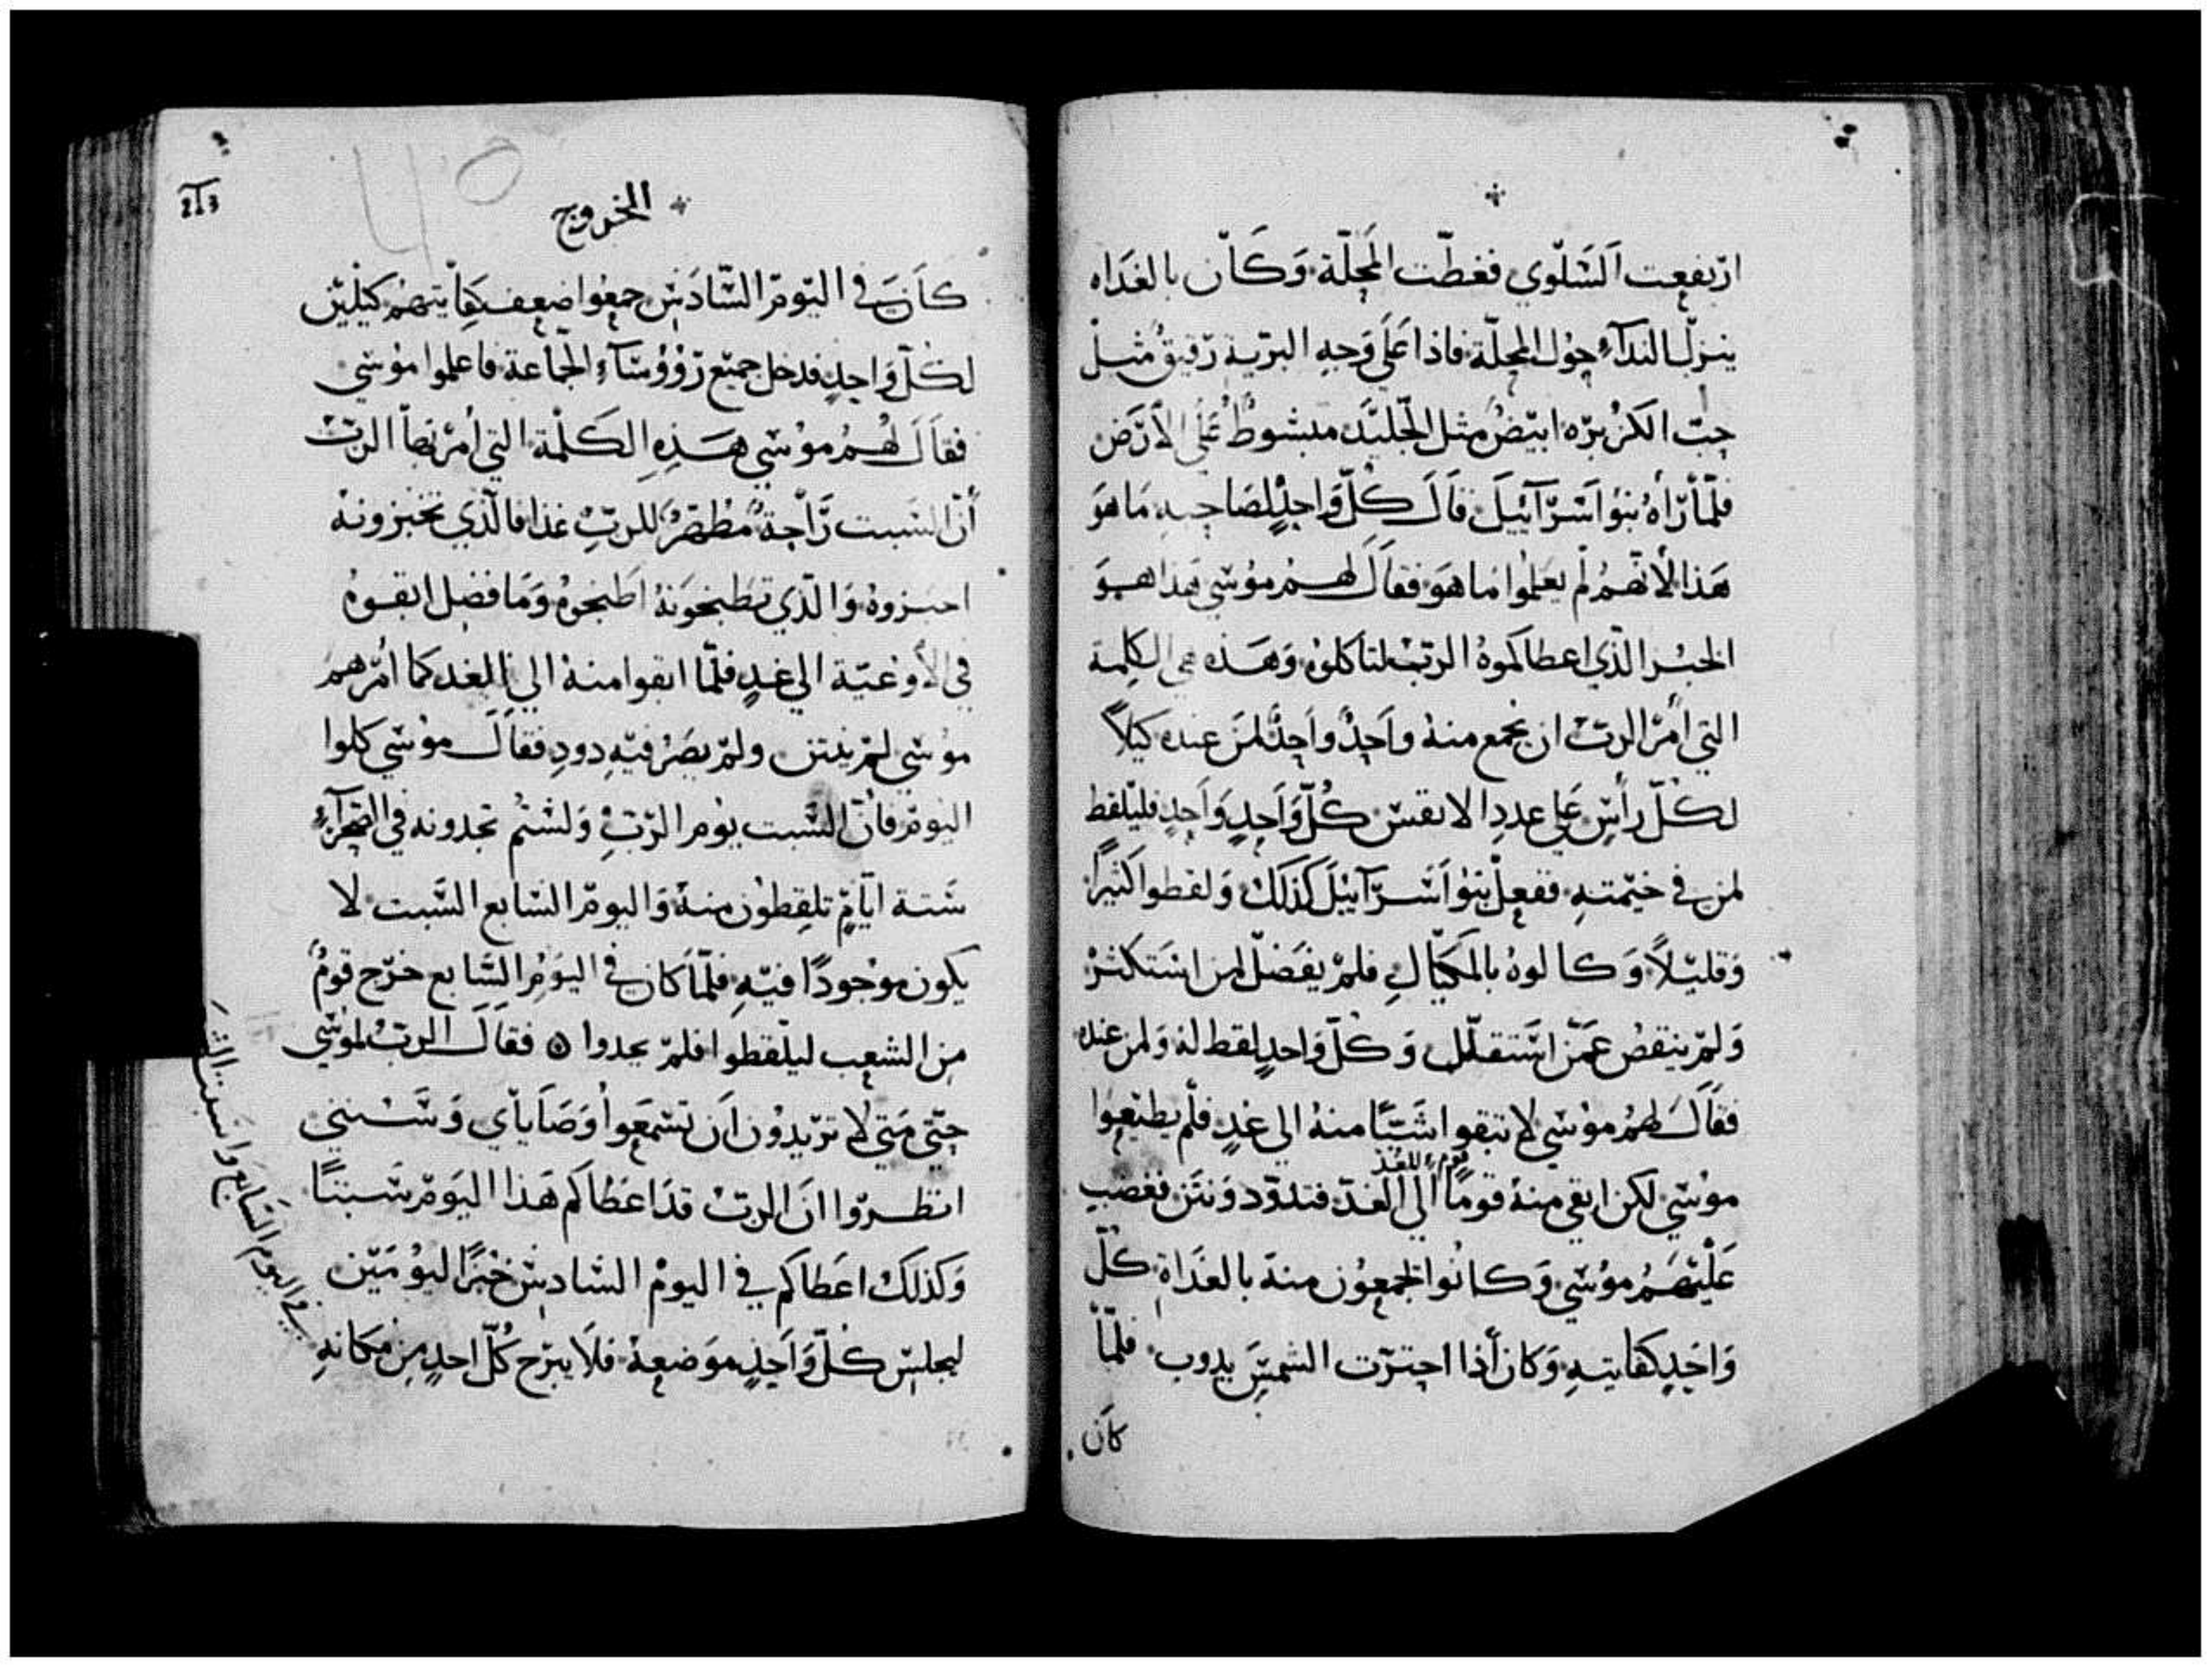 ارتفعت السلوي فغطّت المحلّة وكان بالغداه
ينزل الندآء حول المحلّة فاذا علي وجه البرية رقيق مثل
حبّ الكزبره ابيض مثل الجليد مبسوط علي الأرض
فلمّا رأه بنو اسرآئيل قال كلّ واحدٍ لصاحبه ما هو
هذا لأنهم لم يعلموا ما هو فقال لهم موسي هذا هو
الخبز الذي اعطاكموه الربّ لتاكلوه وهذه هي الكلمة
التي أمر الربّ ان يجمع منه واحدٌ واحدٌ لمن عنده كيلاً
لكلّ رأسٍ علي عدد الانفس كلّ واحدٍ واحدٍ فليلقط
لمن في خيمته ففعل بنو اسرآئيل كذلك ولقطوا كثيرًا
وقليلاً وكالوه بالمكيال فلم يفضل لمن استكثر
ولم ينقص عمّن استقلّل وكلّ واحدٍ لقط له ولمن عنده
فقال لهم موسي لا تبقوا شيًا منه الي غدٍ فلم يطيعوا
موسي لكن ابقي منه قومًا الي الغد فتدوّد ونتن فغضب
عليهم موسي وكانوا يجمعون منه بالغداة كلّ
واحدٍ كفايته وكان أذا احترّت الشمس يدوب فلمّا
كان
213
الخروج
كان في اليوم السادس جمعوا ضعف كفايتهم كيلين
لكلّ واحدٍ فدخل جميع رؤوسآء الجماعة فاعلموا موسي
فقال لهم موسي هذه الكلمة التي أمر بها الربّ
أنّ السبت رّاحة مطهّر للربّ غدا فالّذي تخبزونه
اخبزوه والّذي تطبخونه اطبخوه وما فضل ابقوه
في الأوعيّة الي غدٍ فلمّا ابقوا منه الي الغد كما أمرهم
موسي لم ينتن ولم يصر فيه دود فقال موسي كلوا
اليوم فانّ السّبت يوم الربّ ولستم تجدونه في الصحرآء
ستة ايّامٍ تلقطون منه واليوم السابع السّبت لا
يكون موجودًا فيه فلمّا كان في اليوم السّابع خرج قومٌ
من الشعب ليلقطوا فلم يجدوا ۞ فقال الربّ لموسي
حتّي متي لا تريدون ان تسمعوا وصاياي وسنني
انظروا انّ الربّ قد اعطاكم هذا اليوم سبتًا
وكذلك اعطاكم في اليوم السادس خبزًا ليومين
ليجلس كلّ واحدٍ موضعه فلا يبرح كلّ احدٍ من مكانهِ
في اليوم السابع واسبت